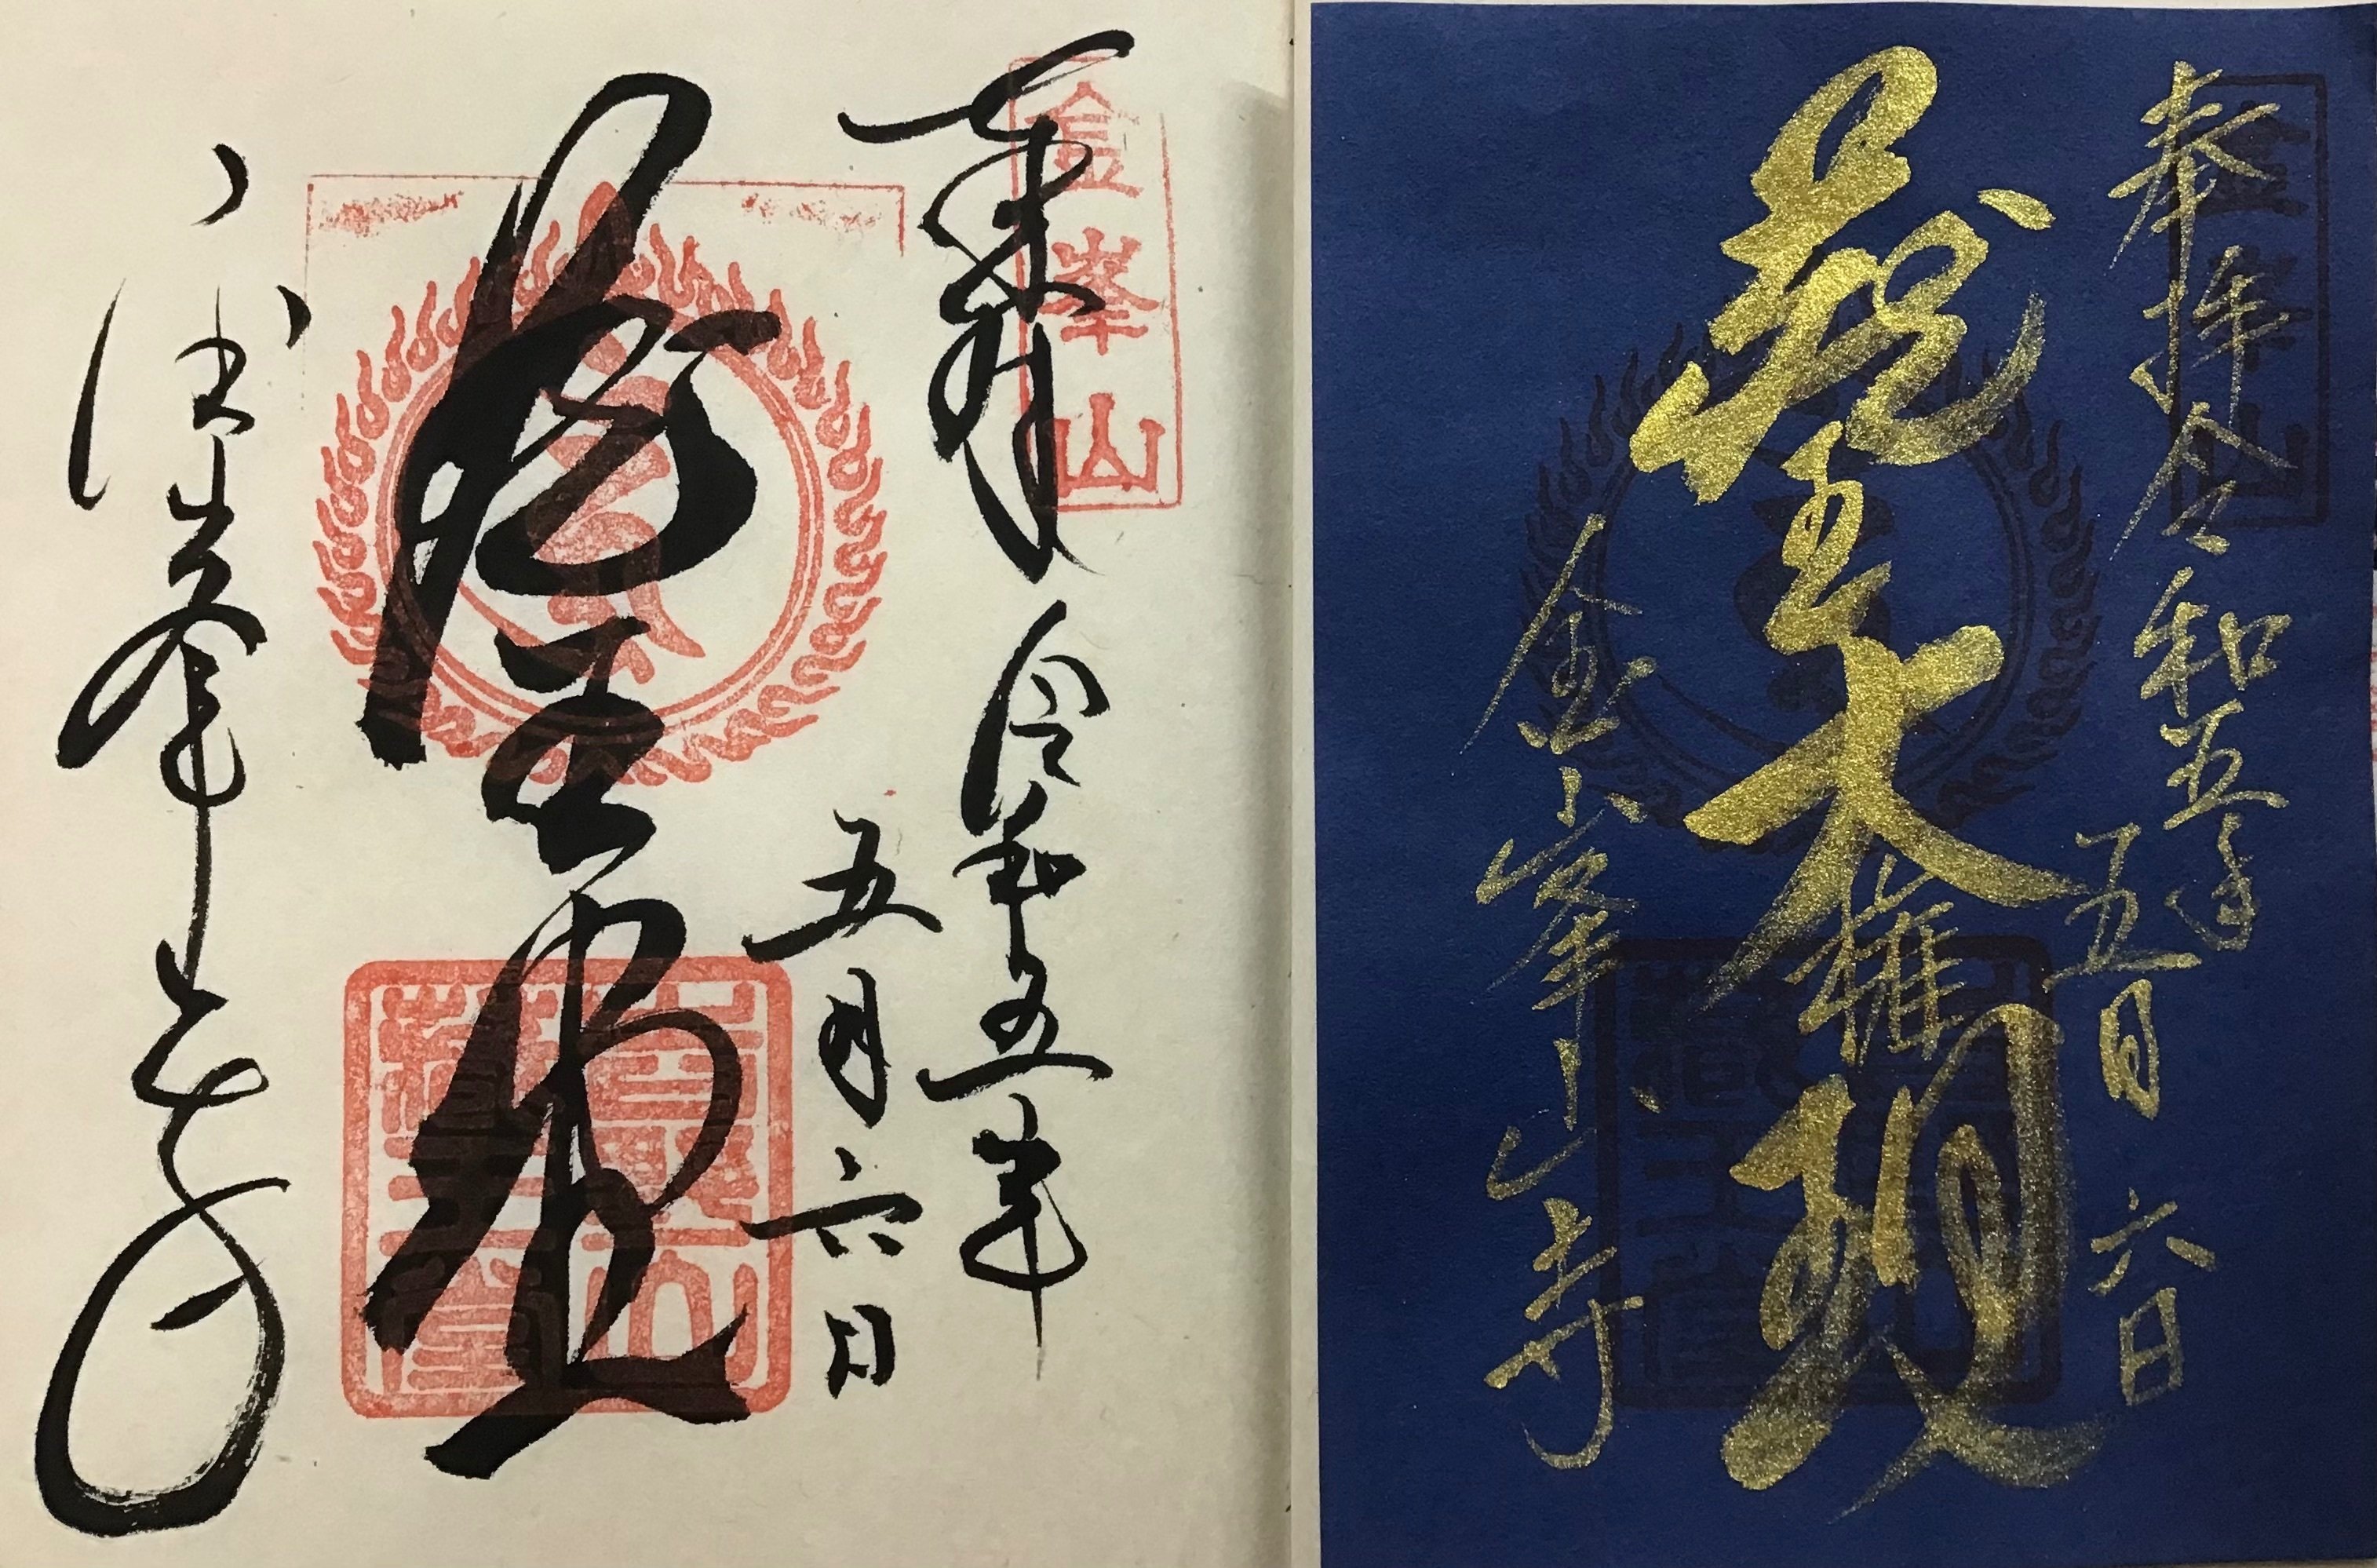 金峯山
奉拝 令和五年
五月六日
蔵王大権現
金峯山寺
金峯山
奉拝 令和五年
五月六日
蔵王堂
金峯山寺
藏王堂